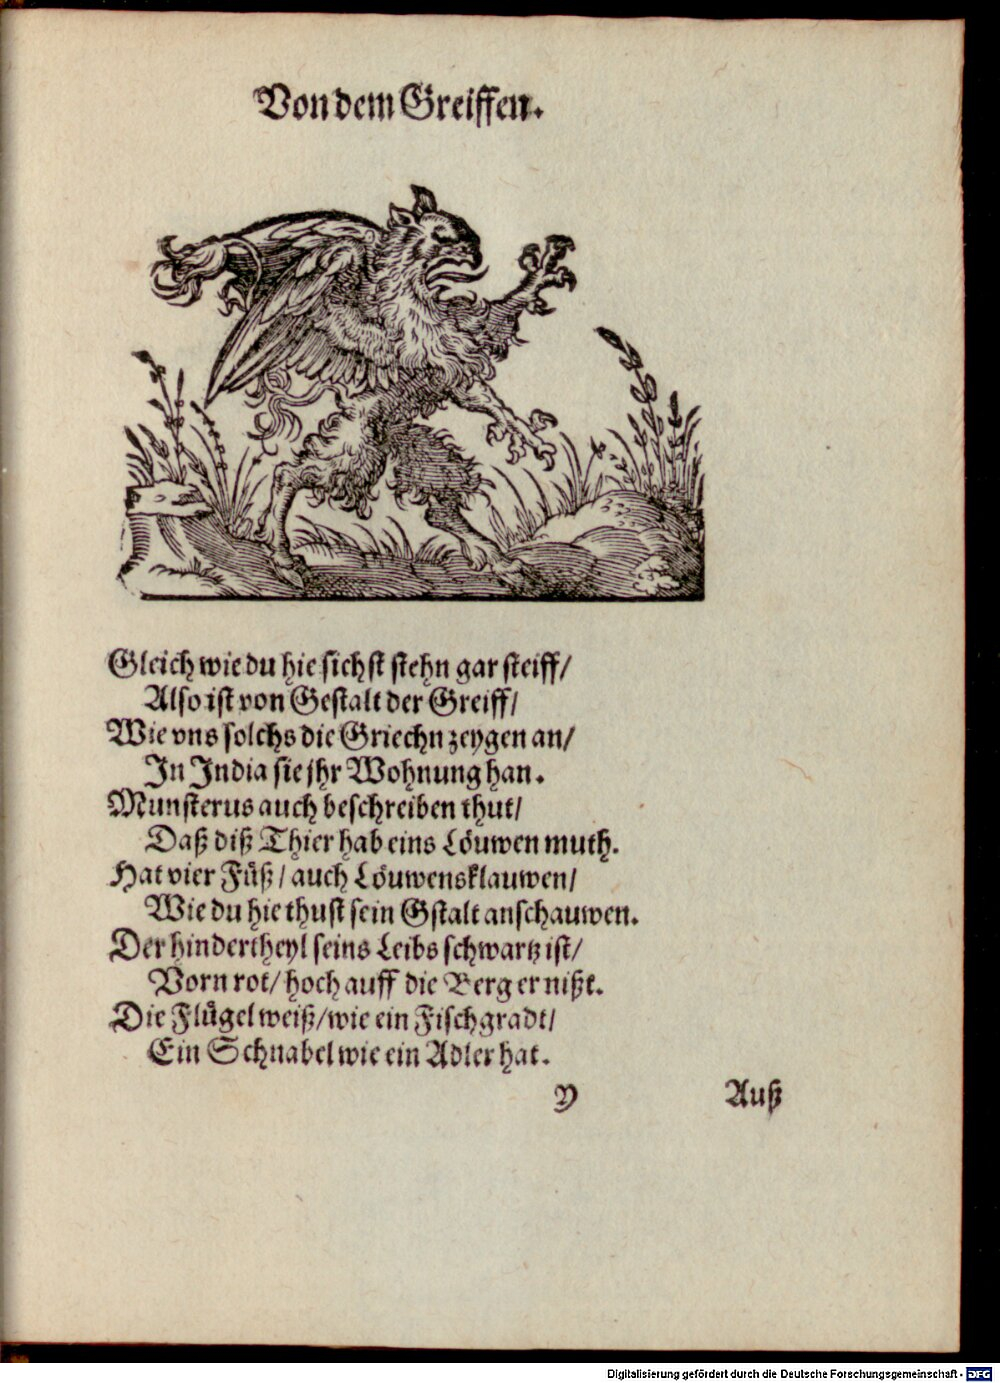 Von dem Greiffen.
Gleich wie du hie sichst stehn gar steiff/
Also ist von Gestalt der Greiff/
Wie vns solchs die Griechn zeygen an/
In India sie jhr Wohnung han.
Munsterus auch beschreiben thut/
Daß diß Thier hab eins Löuwen muth.
Hat vier Füß/ auch Löuwensklauwen/
Wie du hie thust sein Gstalt anschauwen.
Der hindertheyl seins Leibs schwartz ist/
Vorn rot/ hoch auff die Berg er nißt.
Die Flügel weiß/ wie ein Fischgradt/
Ein Schnabel wie ein Adler hat.
Y Auß
Digitalisierung gefördert durch die Deutsche Forschungsgemeinschaft - DFG